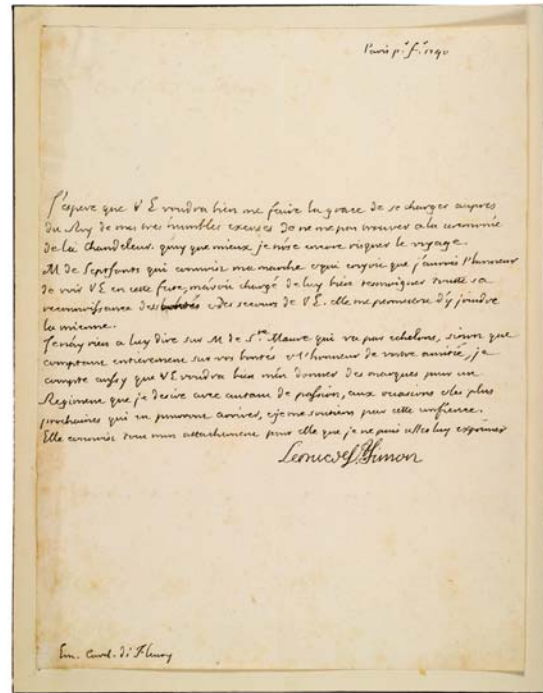 Paris p.r f.r 1740
J'espere que V E voudra bien me faire la grace de se charger aupres
du Roy de mes tres humbles excuses de ne me pas trouver a la ceremonie
de la Chandeleur. quoy que mieux je n'ose encore risquer le voyage.
M de Septfonts qui connoist ma marche et qui croyoit que j'aurois l'honneur
de voir V E en cette feste, m'avoit chargé de luy bien tesmoigner toutte sa
reconnoissance des bontés et des secours de V E. elle me permettra d'y joindre
la mienne.
Je n'ay rien a luy dire sur M de S.te Maure qui va par echelons, sinon que
comptant entierement sur vos bontés et l'honneur de vostre amitié, je
compte aussy que V E voudra bien m'en donner des marques pour un
Regiment que je desire avec autant de passion, aux occasions les plus
prochaines qui en pourront arriver, et je me soutiens par cette confience.
Elle connoist tout mon attachement pour elle que je ne puis assés luy exprimer
Le Duc de S.t Simon
Em. Card. de Fleury